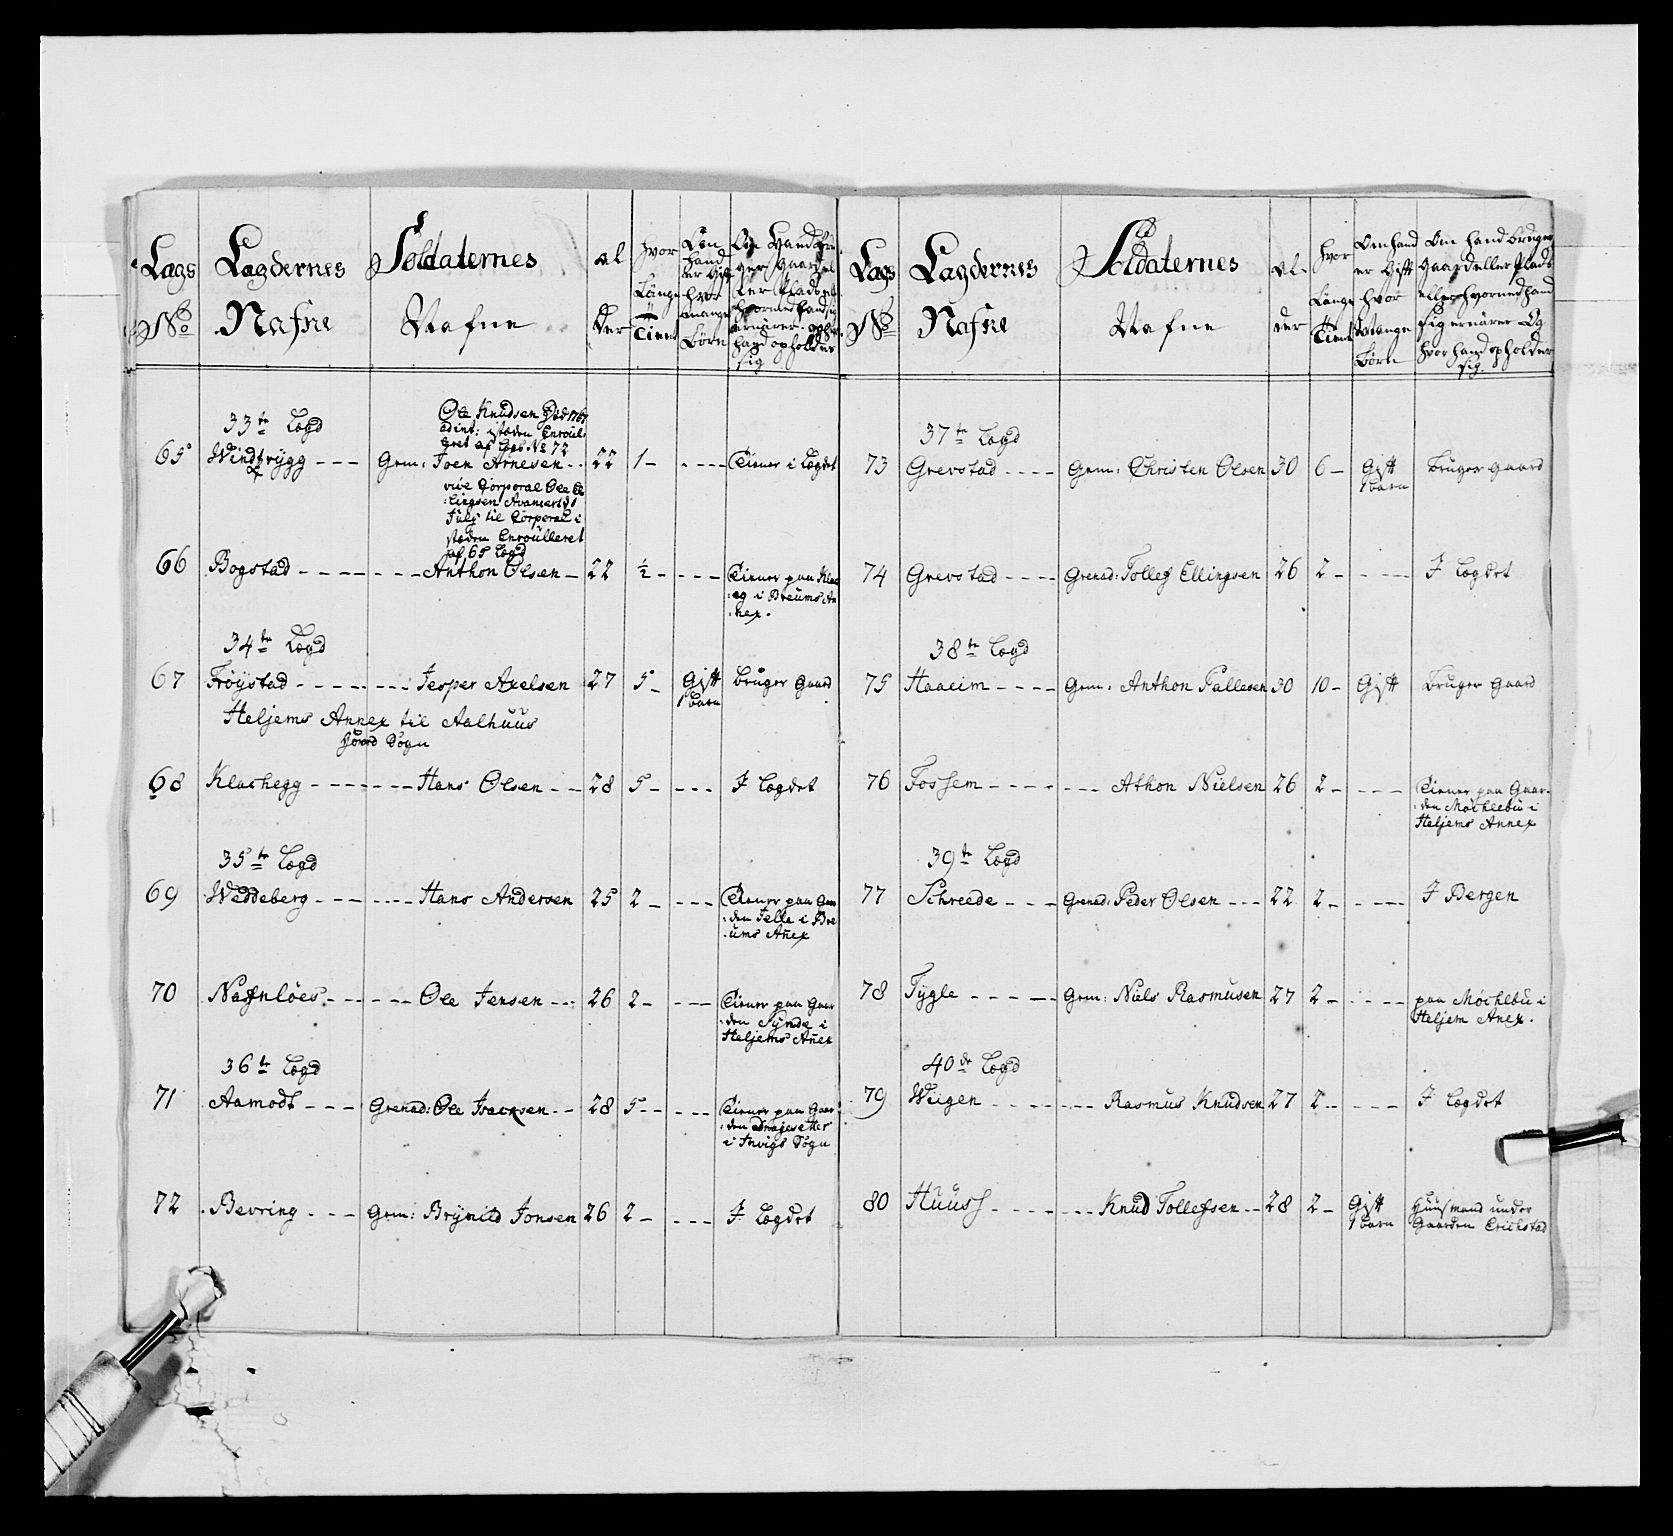 Lags No
Lagdernes Nafne
Soldaternes Nafne
al der
hvor Länge Tient
Om hand er Gift hvor mange Børn
Om Hand bruger Gaard eller Plads eller hvormed hand sig ernärer og hvor hand opholder sig
33te Lægd
Ole Knudsen
65 Windtrygg --- Grm: Joen Arnesen -- 22 1- ---- Tiener i Lægdet
vice Corporal Ole El
:lingsen Avancert d
July til Corporal i
steden Enroulleret
af 65 Lægd
66 Bogstad ---- --- Anthon Olsen - 22 ½- --- Tiener paa Kla
:eg i Breums An
:nex.
34te Lægd
67 Frøystad ---- --- Jesper Axelsen 27 5- Gift 1 barn bruger Gaard
Heljems Annex til Aalhuus
Hoved Sogn
68 Klachegg --- --- Hans Olsen -- 28 5- --- I Lægdet
35te Lægd
69 Weddeberg --- --- Hans Andersen 25 2- --- Tiener paa Gaar
:den Felle i Bre
:ums Anex
70 Nafnløes --- --- Ole Jensen --- 26 2- --- Tiener paa Gaar
:den Synde i
Heljems Anex
36te Lægd
71 Aamodt --- Grenad: Ole Isacksen -- 28 5-- --- Tiener paa Gaar
:den
i Invigs Sogn
72 Bevring --- Grm: Brynild Jonsen 26 2- --- I Lægdet
Lags No
Lagdernes Nafne
Soldaternes Nafne
al- der
hvor Länge Tient
Om hand er Gift hvor Mange Børn
Om hand bruger Gaard eller Plads eller hvormed hand sig ernärer Og hvor hand opholder sig
37te Lægd
73 Grevstad ---- Grm: Christen Olsen 30 6- Gift 1 barn bruger gaard
74 Grevstad ---- Grenad: Tollef Ellingsen 26 2- --- I Lægdet
38te Lægd
75 Haaeim ---- Grm: Anthon Pallesen 30 10- Gift bruger Gaard
76 Fossem ---- --- Athon Nielsen 26 2- --- Tiener paa Gaar-
:den Møchlebu i
Heljems Annex
39te Lægd
77 Schreede --- Grenad: Peder Olsen --- 22 2- --- I Bergen
78 Tygle ---- Grm: Niels Rasmusen 27 2- ---- paa Møchlebu i
Heljem Anex.
40de Lægd
79 Weigen ---- --- Rasmus Knudsen 27 2-- --- I Lægdet
80 Huus ---- --- Knud Tollefsen -- 28 2- Gift 1 barn Huusmand under
Gaarden Erichstad